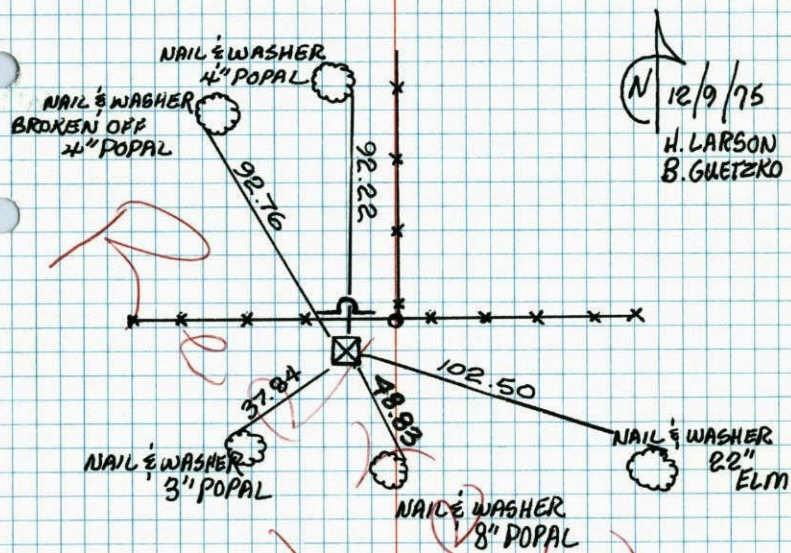 NAIL & WASHER
4" POPAL
NAIL & WASHER
BROKEN OFF
4" POPAL
N
12/9/75
H. LARSON
B. GUETZKO
92.76
92.22
37.84
48.83
102.50
NAIL & WASHER
3" POPAL
NAIL & WASHER
8" POPAL
NAIL & WASHER
22"
ELM